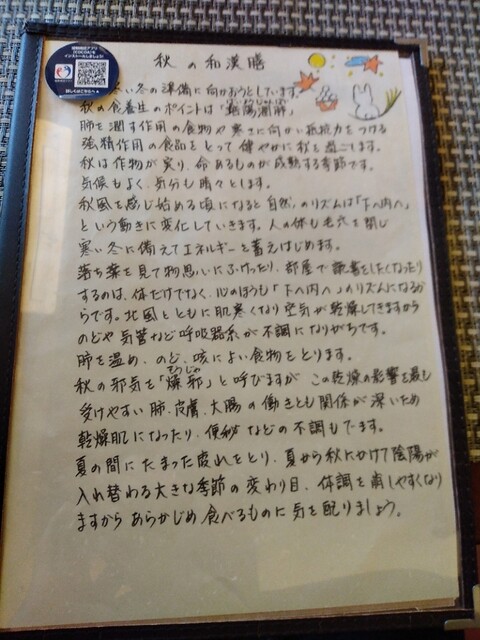 秋の和漢膳
い冬の準備に向かおうとしています。
秋の食養生のポイントは「
肺を潤す作用の食物や寒さに向かい抵抗力をつける
強精作用の食品をとって健やかに秋を過ごします。
秋は作物が実り、命あるものが成熟する季節です。
気候もよく、気分も晴々とします。
秋風を感じ始める頃になると自然のリズムは「下へ内へ」
という動きに変化していきます。人の体も毛穴を閉じ
寒い冬に備えてエネルギーを蓄えはじめます。
落ち葉を見て物思いにふけったり、部屋で読書をしたくなったり
するのは、体だけでなく、心のほうも「下へ内へ」のリズムになるか
らです。北風とともに肌寒くなり空気が乾燥してきますから
のどや気管など呼吸器系が不調になりがちです。
肺を温め、のど、咳によい食物をとります。
秋の邪気を「燥邪」と呼びますが この乾燥の影響を最も
そうじゃ
受けやすい肺、皮膚、大腸の働きとも関係が深いため
乾燥肌になったり、便秘などの不調もでます。
夏の間にたまった疲れをとり、夏から秋にかけて陰陽が
入れ替わる大きな季節の変わり目、体調を崩しやすくなり
ますから あらかじめ食べるものに気を配りましょう。